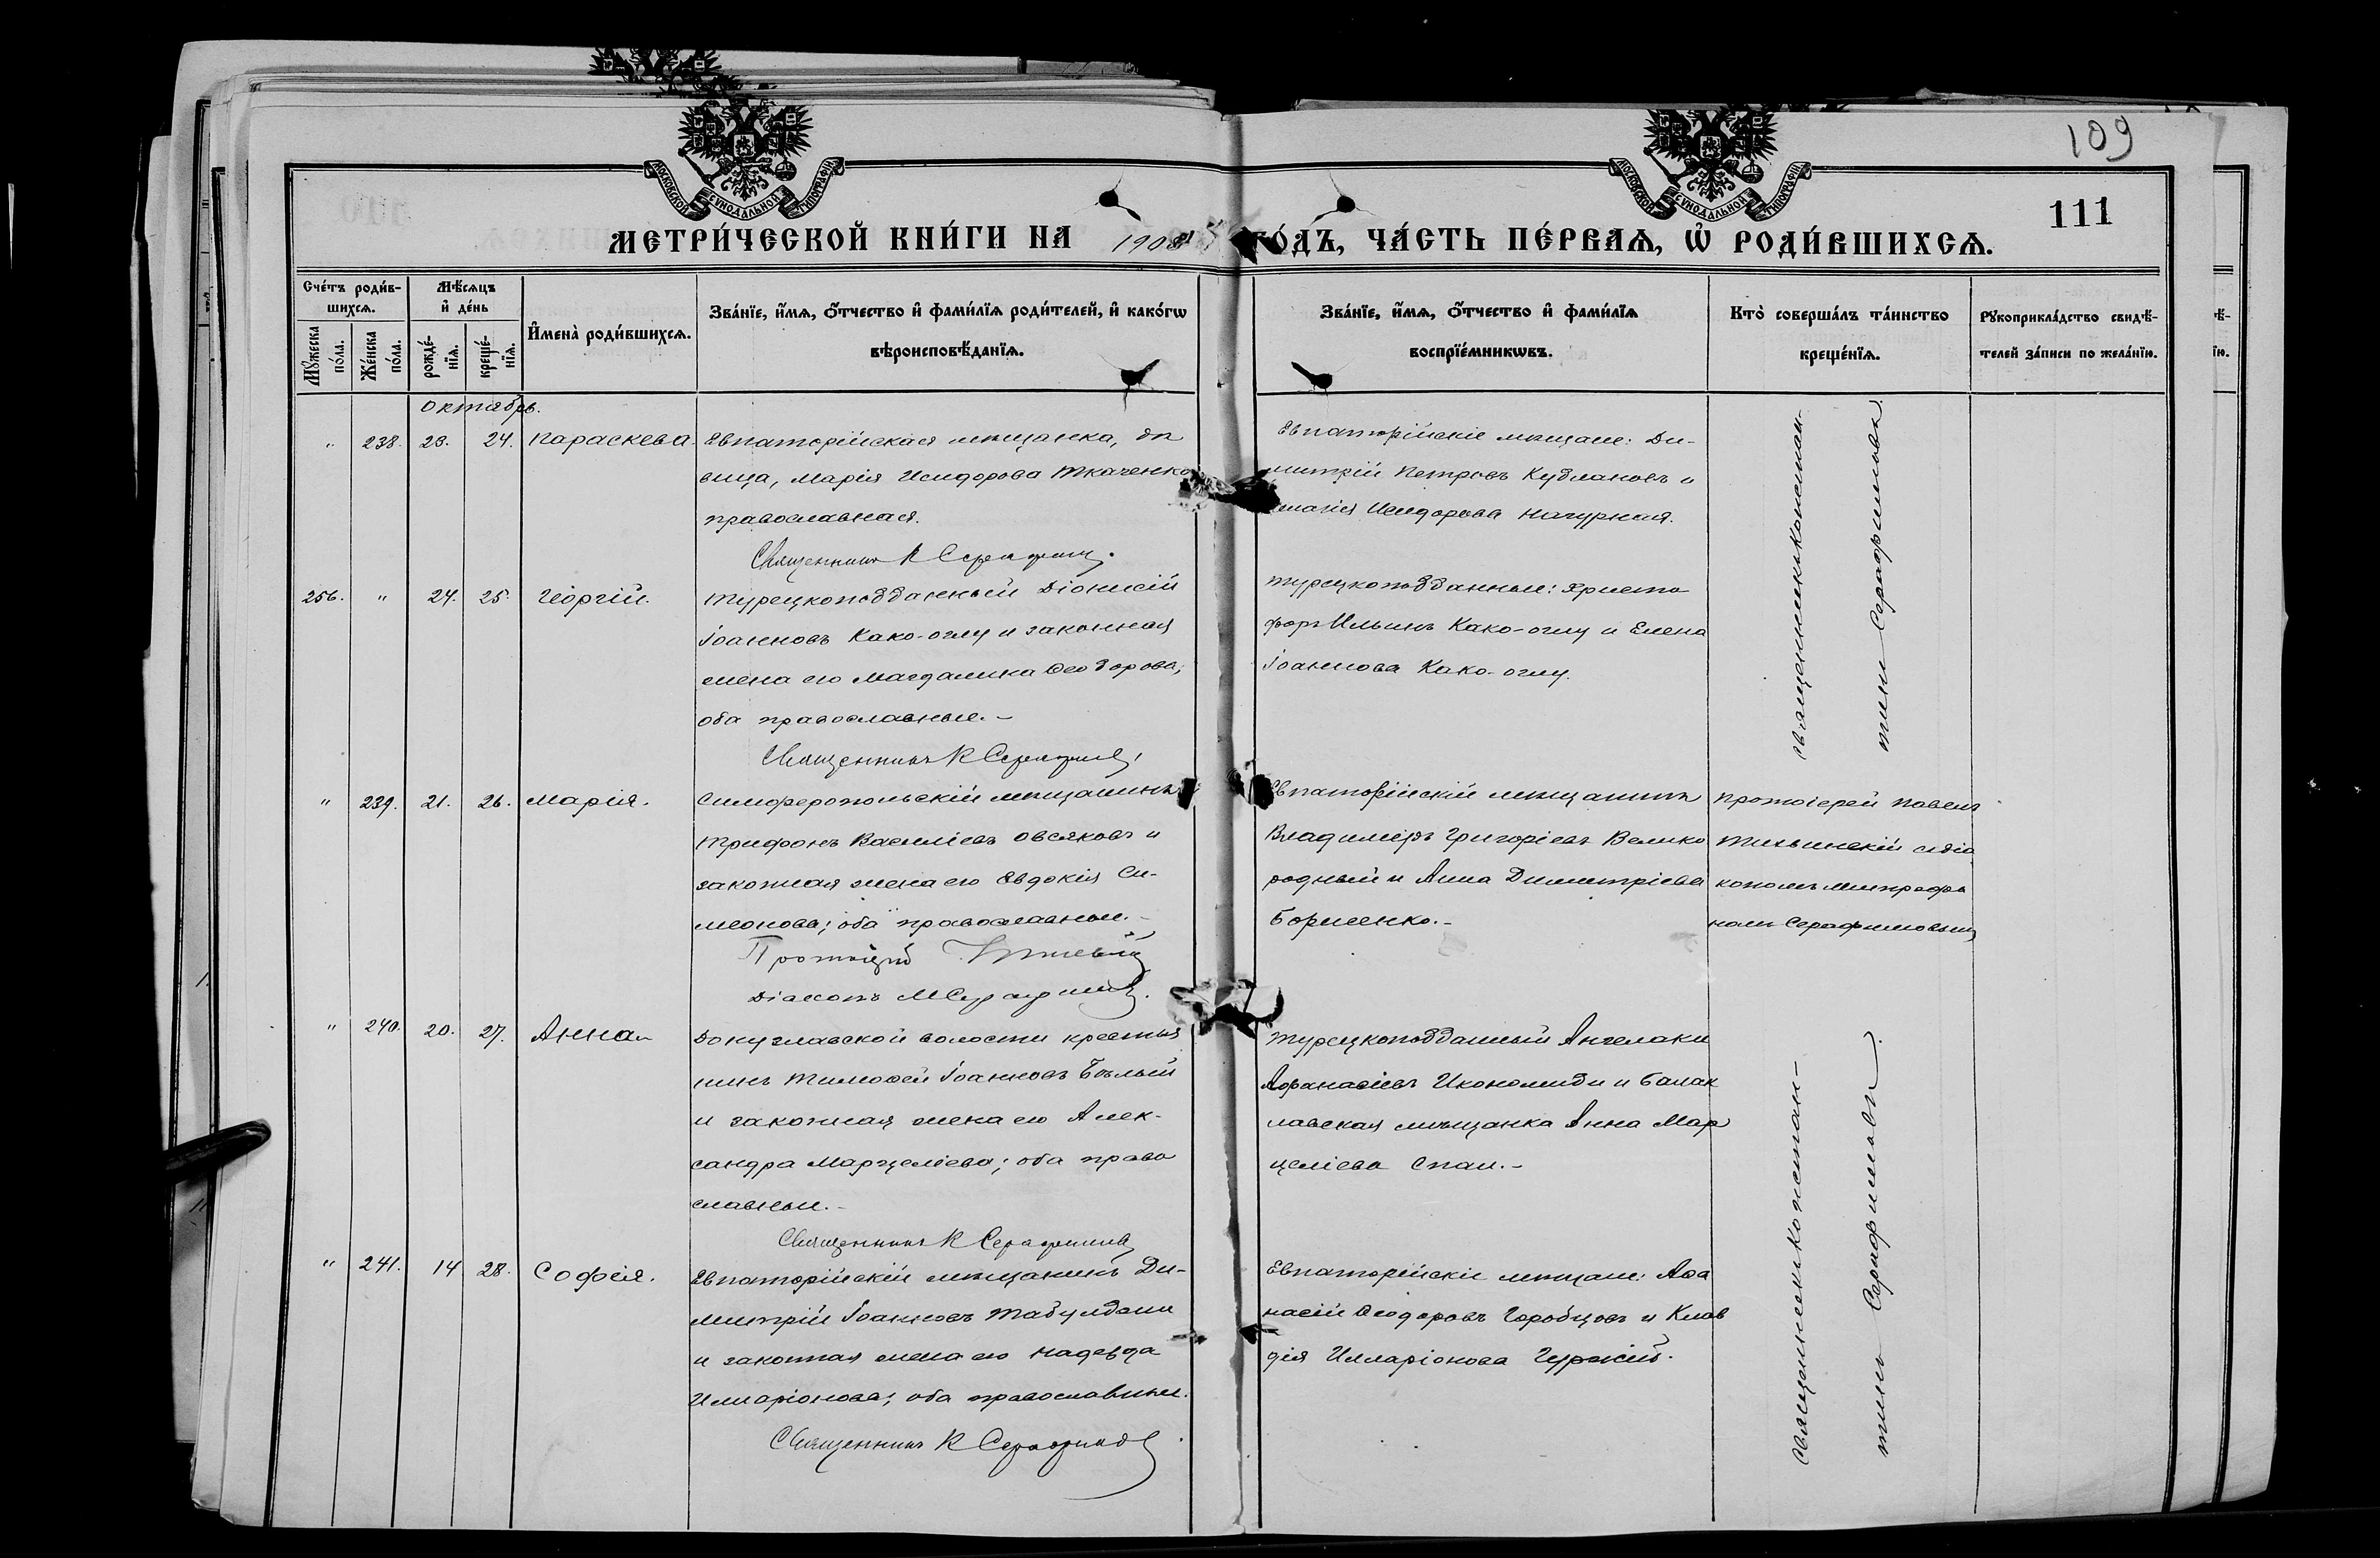 109
111
МОСКОВСКОЙ СѴНОДАЛЬНОЙ ТИПОГРАФІИ
МОСКОВСКОЙ СѴНОДАЛЬНОЙ ТИПОГРАФІИ
МЕТРИ́ЧЕСКОЙ КНИ́ГИ НА 1908 ГО́ДЪ, ЧА́СТЬ ПЕ́РВАѦ, Ѡ҆ РОДИ́ВШИХСѦ.
Сче́тъ роди́в-
шихсѧ.
Мꙋ́жеска по́ла.
Же́нска по́ла.
Мѣ́сѧцъ
и҆ де́нь
рожде́-
нїѧ.
креще́-
нїѧ.
И҆мена̀ роди́вшихсѧ.
Зва́нїе, и҆́мѧ, ѻ҆́тчество и҆ фами́лїѧ роди́телей, и҆ како́гѡ
вѣроисповѣ́данїѧ.
Зва́нїе, и҆́мѧ, ѻ҆́тчество и҆ фами́лїѧ
воспрїе́мникѡвъ.
Кто̀ соверша́лъ та́инство
креще́нїѧ.
Рꙋкоприкла́дство свидѣ́-
телей за́писи по жела́нїю.
октябрь.
" 238. 23. 24. Параскева.
Евпаторійская мѣщанка, дѣ
вица, Марія Исидорова Ткаченко
православная.
Священникъ К Серафимовъ.
Евпаторійскіе мѣщане: Ди-
митрій Петровъ и
Исидорова
священникъ Констан-
тинъ Серафимовъ.
256. " 24. 25. Георгій.
Турецкоподданный Діонисій
Іоанновъ Како-оглу и законная
жена его Магдалина Ѳеодорова,
оба православные.-
Священникъ К Серафимовъ.
Турецкоподданные: Христо
форъ Ильинъ Како-оглу и Елена
Іоаннова Како-оглу.
" 239. 21. 26. Марія.
Симферопольскій мѣщанинъ
Трифонъ Василіевъ Овсяковъ и
законная жена его Евдокія Си-
меонова; оба православные.-
Протоіерей
Діаконъ М Серафимовъ.
Евпаторійскій мѣщанинъ
Владиміръ Григоріевъ Велико
родный и Анна Димитріева
Борисенко.-
Протоіерей Павелъ
съ діа
кономъ Митрофа
номъ Серафимовымъ
" 240. 20. 27. Анна
Донузлавской волости крестья
нинъ Тимоѳей Іоанновъ Бѣлый
и законная жена его Алек-
сандра Марцеліева; оба право
славные.-
Священникъ К Серафимовъ
Турецкоподданный Ангелаки
Аѳанасіевъ Икономиди и Балак
лавская мѣщанка Анна Мар
целіева Спаи.-
Священникъ Констан-
тинъ Серафимовъ.
" 241. 14 28. Софія.
Евпаторійскій мѣщанинъ Ди-
митрій Іоанновъ
и законная жена его Надежда
Илларіонова; оба православные.
Священникъ К Серафимовъ.
Евпаторійскіе мѣщане: Аѳа
насій Ѳеодоровъ Горобцовъ и Клав
дія Илларіонова